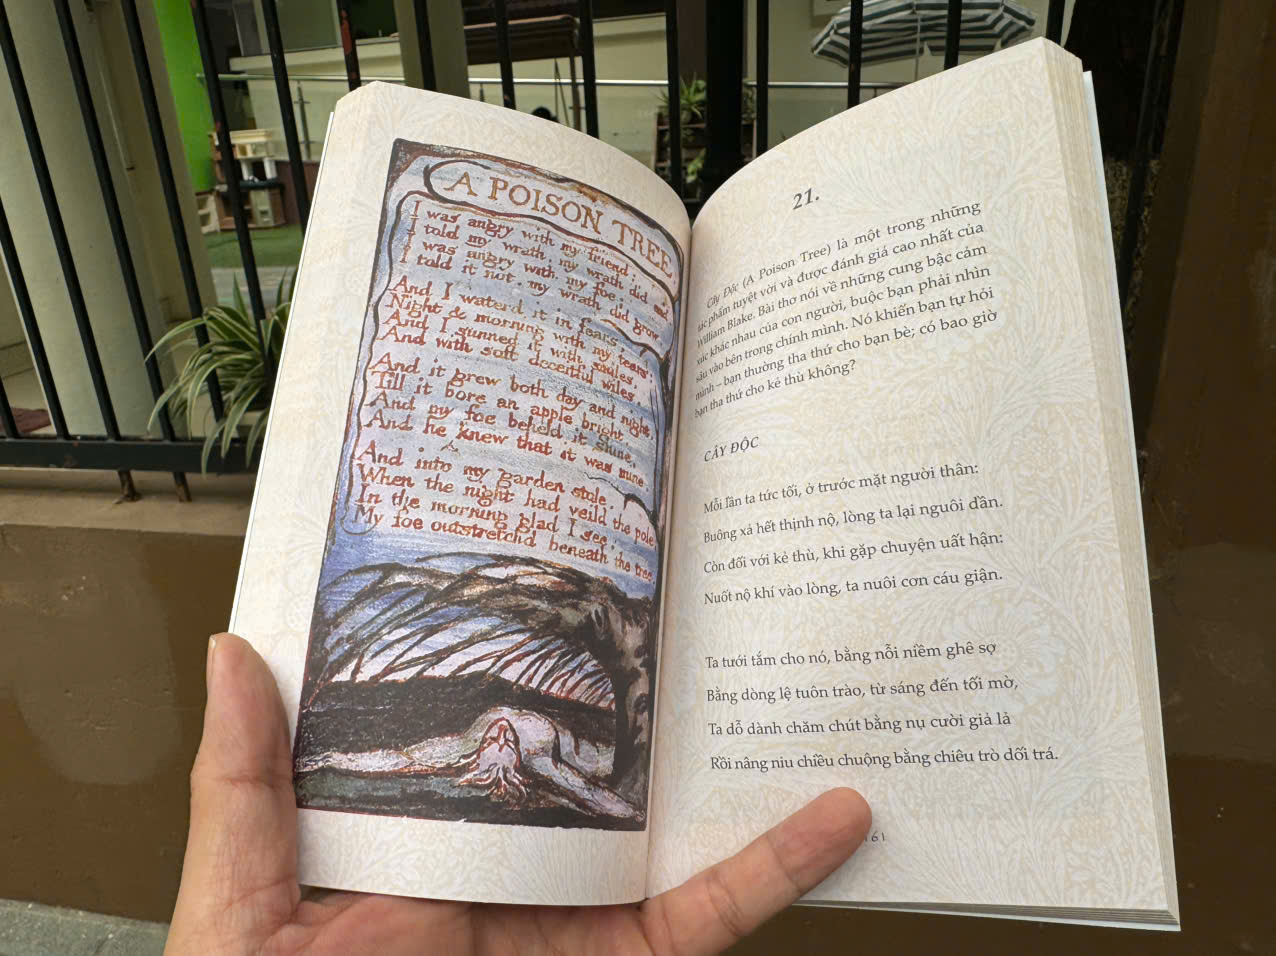 A POISON TREE
I was angry with my friend:
I told my wrath, my wrath did end.
I was angry with my foe:
I told it not, my wrath did grow.
And I waterd it in fears,
Night & morning with my tears:
And I sunned it with smiles,
And with soft deceitful wiles.
And it grew both day and night,
Till it bore an apple bright.
And my foe beheld it shine,
And he knew that it was mine.
And into my garden stole.
When the night had veild the pole;
In the morning glad I see,
My foe outstretchd beneath the tree.
21.
Cây Độc (A Poison Tree) là một trong những
tác phẩm tuyệt vời và được đánh giá cao nhất của
William Blake. Bài thơ nói về những cung bậc cảm
xúc khác nhau của con người, buộc bạn phải nhìn
sâu vào bên trong chính mình. Nó khiến bạn tự hỏi
mình – bạn thường tha thứ cho bạn bè; có bao giờ
bạn tha thứ cho kẻ thù không?
CÂY ĐỘC
Mỗi lần ta tức tối, ở trước mặt người thân:
Buông xả hết thịnh nộ, lòng ta lại nguôi dần.
Còn đối với kẻ thù, khi gặp chuyện uất hận:
Nuốt nộ khí vào lòng, ta nuôi cơn cáu giận.
Ta tưới tắm cho nó, bằng nỗi niềm ghê sợ
Bằng dòng lệ tuôn trào, từ sáng đến tối mờ,
Ta dỗ dành chăm chút bằng nụ cười giả lả
Rồi nâng niu chiều chuộng bằng chiêu trò dối trá.
161